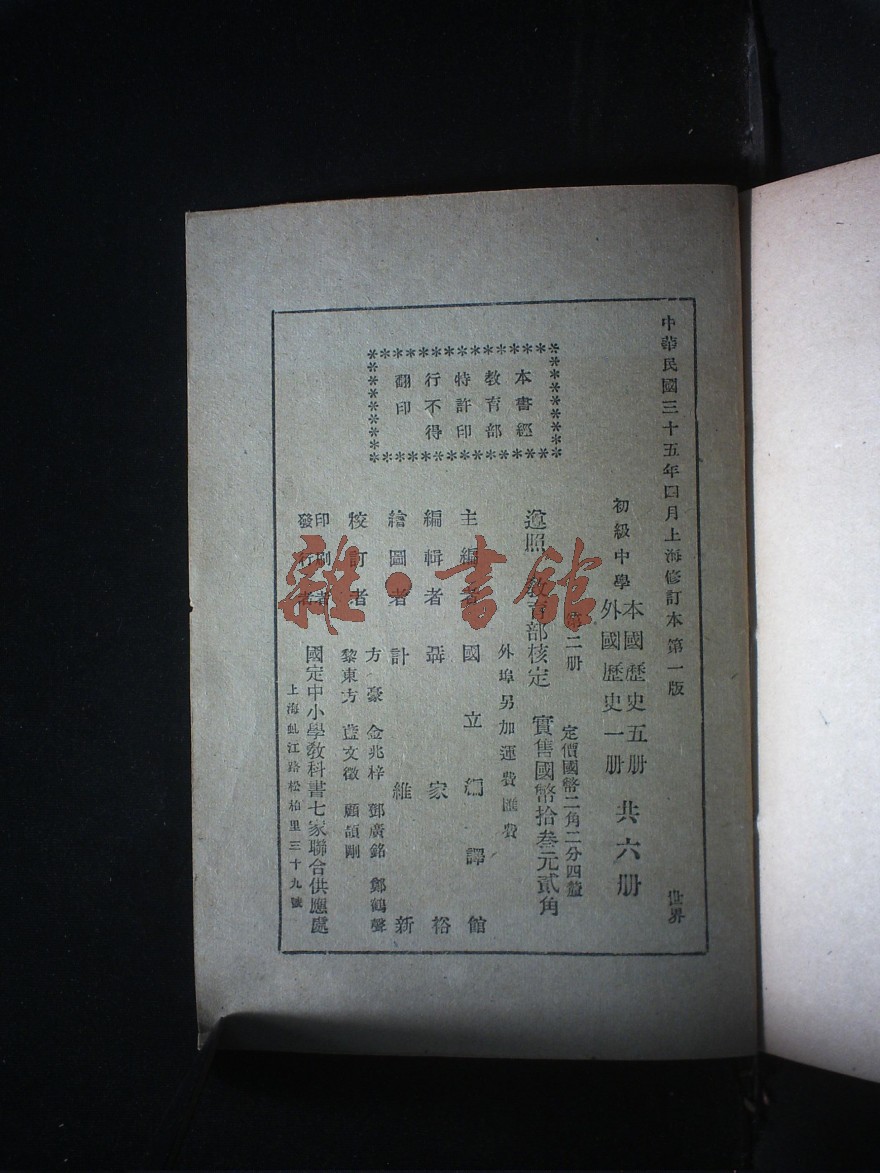 中華民國三十五年四月上海修訂本第一版
世界
初級中學
本國歷史五册
外國歷史一册
共六册
第二册
定價國幣二角二分四釐
遵照教育部核定
實售國幣拾叁元貳角
外埠另加運費匯費
本書經
教育部
特許印
行不得
翻印
主編者 國立編譯館
編輯者 聶家裕
繪圖者 計維新
校訂者 方豪 金兆梓 鄧廣銘 鄭鶴聲
黎東方 藍文徵 顧頡剛
印刷者
發行者
國定中小學教科書七家聯合供應處
上海虬江路松柏里三十九號
雜·書館